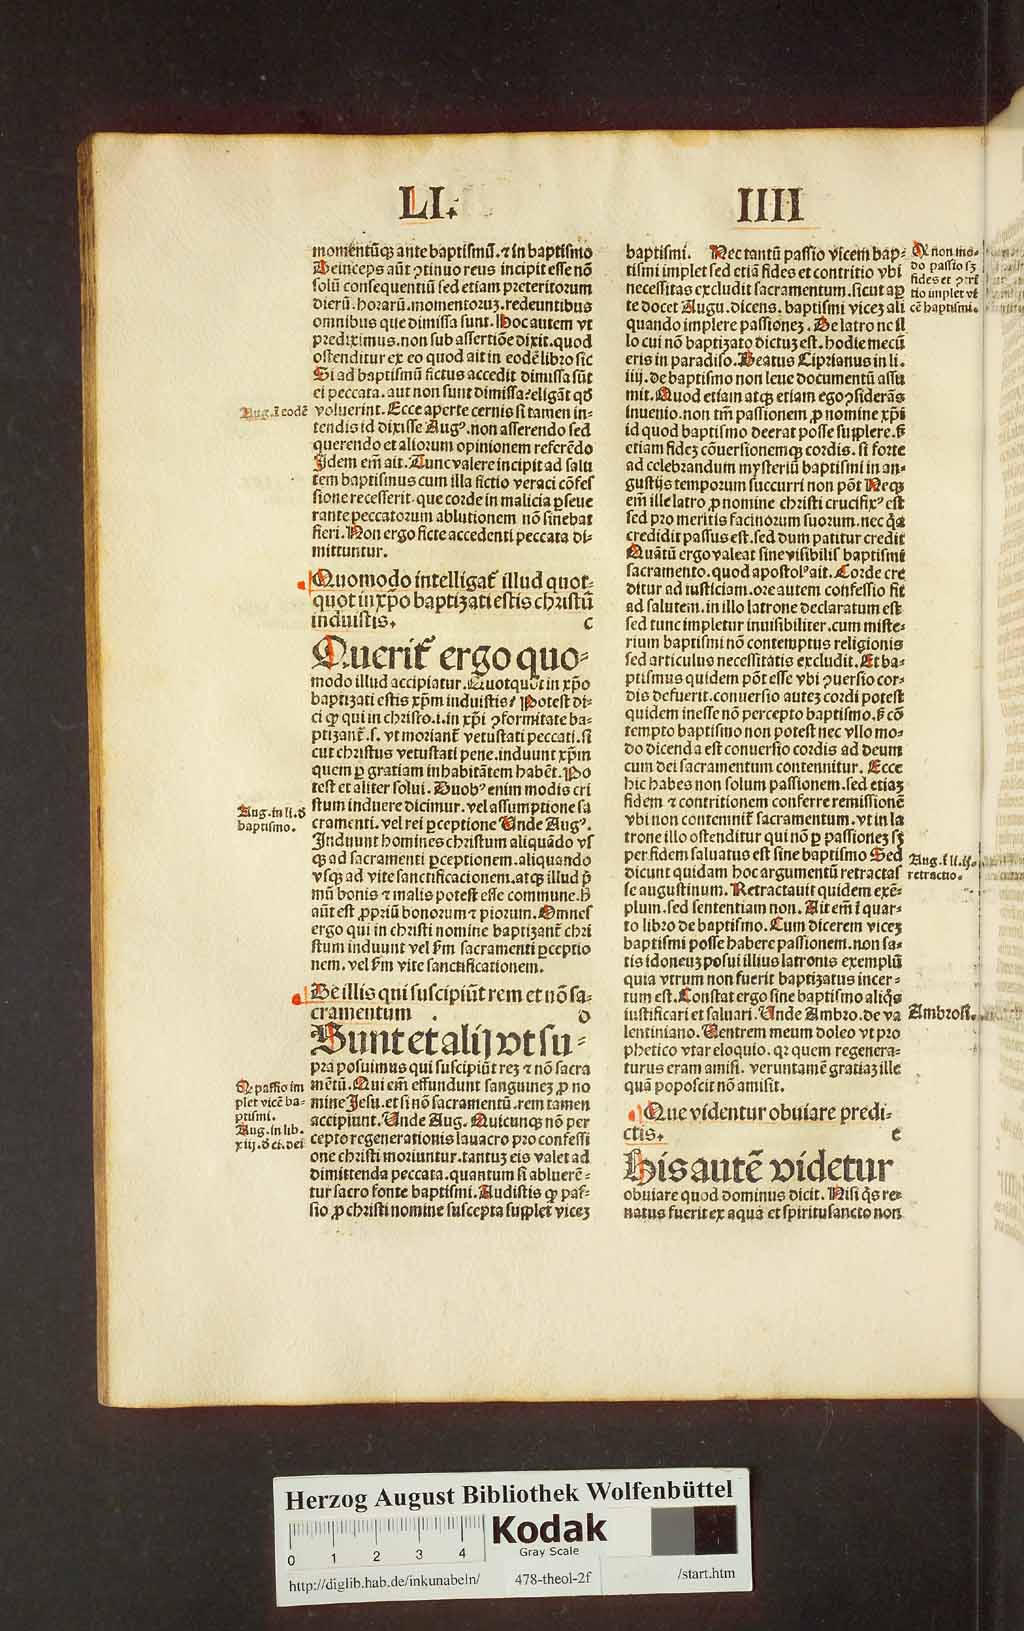 LI. IIII
momentūqꝫ ante baptismū. ⁊ in baptismo
Deinceps aūt ꝯtinuo reus incipit esse nō
solū consequentiū sed etiam preteritorum
dierū. horarū. momentoruꝫ. redeuntibus
omnibus que dimissa sunt. Hoc autem vt
prediximus. non sub assertiōe dixit. quod
ostenditur ex eo quod ait in eodē libro sic
Si ad baptismū fictus accedit dimissa sūt
ei peccata. aut non sunt dimissa? eligāt qd̄
Aug. ī eodē
voluerint. Ecce aperte cernis si tamen in-
tendis id dixisse Augꝰ. non asserendo sed
querendo et aliorum opinionem referēdo
Idem em̄ ait. Tunc valere incipit ad salu
tem baptismus cum illa fictio veraci cōfes
sione recesserit. que corde in malicia ꝑseue
rante peccatorum ablutionem nō sinebat
fieri. Non ergo ficte accedenti peccata di-
mittuntur.
Quomodo intelligat᷑ illud quot-
quot in xp̄o baptizati estis christū
induistis. c
Querit᷑ ergo quo-
modo illud accipiatur. Quotquot in xp̄o
baptizati estis xp̄m induistis? Potest di-
ci ꝙ qui in christo .i. in xp̄i ꝯformitate ba-
ptizant᷑ .s. vt moriant᷑ vetustati peccati. si
cut christus vetustati pene. induunt xp̄m
quem ꝑ gratiam inhabitātem habēt. Po
test et aliter solui. Duobꝰ enim modis cri
Aug. in li. ð
baptismo.
stum induere dicimur. vel assumptione sa
cramenti. vel rei ꝑceptione Unde Augꝰ.
Induunt homines christum aliquādo vs
qꝫ ad sacramenti ꝑceptionem. aliquando
vsqꝫ ad vite sanctificacionem. atqꝫ illud p̄
mū bonis ⁊ malis potest esse commune. h̄
aūt est ꝓpriū bonorum ⁊ piorum. Omnes
ergo qui in christi nomine baptizant᷑ chri
stum induunt vel ẜm sacramenti ꝑceptio
nem. vel ẜm vite sanctificationem.
De illis qui suscipiūt rem et nō sa-
cramentum . d
Sunt et alij vt su-
pra posuimus qui suscipiūt reꝫ ⁊ nō sacra
Qꝙ passio im
plet vicē ba-
ptismi.
Aug. in lib.
xiij. ð ci. dei
mētū. Qui em̄ effundunt sanguineꝫ ꝓ no
mine Jesu. et si nō sacramentū. rem tamen
accipiunt. Unde Aug. Quicunqꝫ nō per
cepto regenerationis lauacro pro confessi
one christi moriuntur. tantuꝫ eis valet ad
dimittenda peccata. quantum si abluerē-
tur sacro fonte baptismi. Audistis ꝙ pas-
sio ꝓ christi nomine suscepta supplet viceꝫ
baptismi. Nec tantū passio vicem bap-
tismi implet sed etiā fides et contritio vbi
necessitas excludit sacramentum. sicut aꝑ
te docet Augu. dicens. baptismi viceꝫ ali
quando implere passioneꝫ. De latrone il
lo cui nō baptizato dictuꝫ est. hodie mecū
eris in paradiso. Beatus Ciprianus in li.
iiij. de baptismo non leue documentū assu
mit. Quod etiam atqꝫ etiam ego ꝯsiderās
inuenio. non tm̄ passionem ꝓ nomine xp̄i
id quod baptismo deerat posse supplere. ẜ
etiam fideꝫ cōuersionemqꝫ cordis. si forte
ad celebrandum mysteriū baptismi in an-
gustijs temporum succurri non pōt Neqꝫ
em̄ ille latro ꝓ nomine christi crucifixꝰ est
sed pro meritis facinorum suorum. nec q̄a
credidit passus est. sed dum patitur credit
Quātū ergo valeat sine visibilis baptismi
sacramento. quod apostolꝰ ait. Corde cre
ditur ad iusticiam. ore autem confessio fit
ad salutem. in illo latrone declaratum est
sed tunc impletur inuisibiliter. cum miste-
rium baptismi nō contemptus religionis
sed articulus necessitatis excludit. Et ba-
ptismus quidem pōt esse vbi ꝯuersio cor-
dis defuerit. conuersio auteꝫ cordi potest
quidem inesse nō percepto baptismo. ẜ cō
tempto baptismo non potest nec vllo mo-
do dicenda est conuersio cordis ad deum
cum dei sacramentum contennitur. Ecce
hic habes non solum passionem. sed etiaꝫ
fidem ⁊ contritionem conferre remissionē
vbi non contemnit᷑ sacramentum. vt in la
trone illo ostenditur qui nō ꝑ passioneꝫ sꝫ
per fidem saluatus est sine baptismo Sed
dicunt quidam hoc argumentū retractas
se augustinum. Retractauit quidem exē-
plum. sed sententiam non. Ait em̄ ī quar-
to libro de baptismo. Cum dicerem viceꝫ
baptismi posse habere passionem. non sa-
tis idoneuꝫ posui illius latronis exemplū
quia vtrum non fuerit baptizatus incer-
tum est. Constat ergo sine baptismo aliq̄s
iustificari et saluari. Unde Ambro. de va
lentiniano. Ventrem meum doleo vt pro
phetico vtar eloquio. qr quem regenera-
turus eram amisi. veruntamē gratiaꝫ ille
quā poposcit nō amisit.
Que videntur obuiare predi-
ctis. e
His autē videtur
obuiare quod dominus dicit. Nisi q̄s re-
natus fuerit ex aqua et spiritu sancto non
Qꝙ non mo-
do passio sꝫ
fides et ꝯtri
tio implet vi
cē baptismi.
Aug. ī li. ij.
retractio.
Ambrosi.
Herzog August Bibliothek Wolfenbüttel
0 1 2 3 4
Kodak
Gray Scale
http://diglib.hab.de/inkunabeln/ 478-theol-2f /start.htm